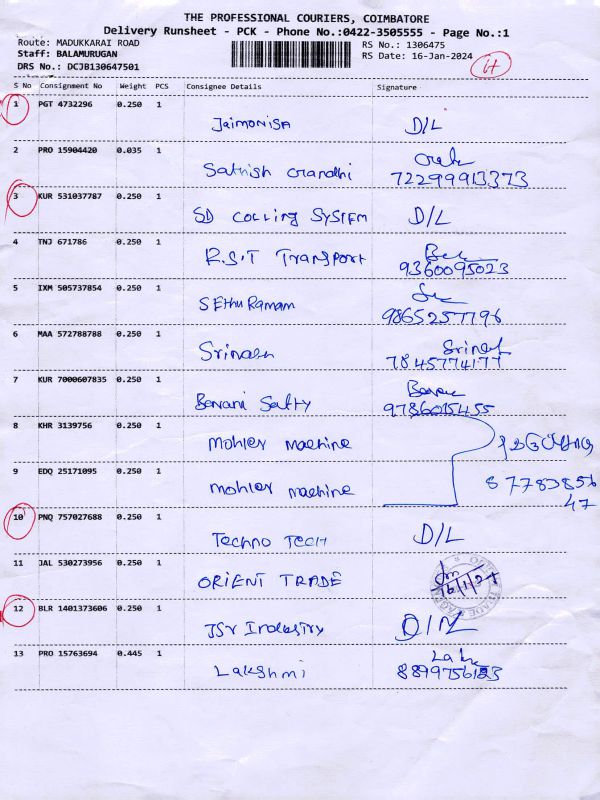 THE PROFESSIONAL COURIERS, COIMBATORE
Delivery Runsheet - PCK - Phone No.:0422-3505555 - Page No.:1
Route: MADUKKARAI ROAD
RS No.: 1306475
Staff: BALAMURUGAN
RS Date: 16-Jan-2024
DRS No.: DCJB130647501
S No Consignment No Weight PCS Consignee Details Signature
1 PGT 4732296 0.250 1
Jaimonisa D/L
2 PRO 15904420 0.035 1
Sathish Grandhi
72299913373
3 KUR 531037787 0.250 1
SD COLLING SYSTEM D/L
4 TNJ 671786 0.250 1
R.S.T Transport
9360095023
5 IXM 505737854 0.250 1
SEthu Ramam
9865257796
6 MAA 572788788 0.250 1
7845774177
7 KUR 7000607835 0.250 1
9786015455
8 KHR 3139756 0.250 1
mohler machine
9 EDQ 25171095 0.250 1
mohler machine 87783856
47
10 PNQ 757027688 0.250 1
Techno TECH D/L
11 JAL 530273956 0.250 1
ORIENT TRADE
12 BLR 1401373606 0.250 1
JSr Industry
13 PRO 15763694 0.445 1
Lakshmi